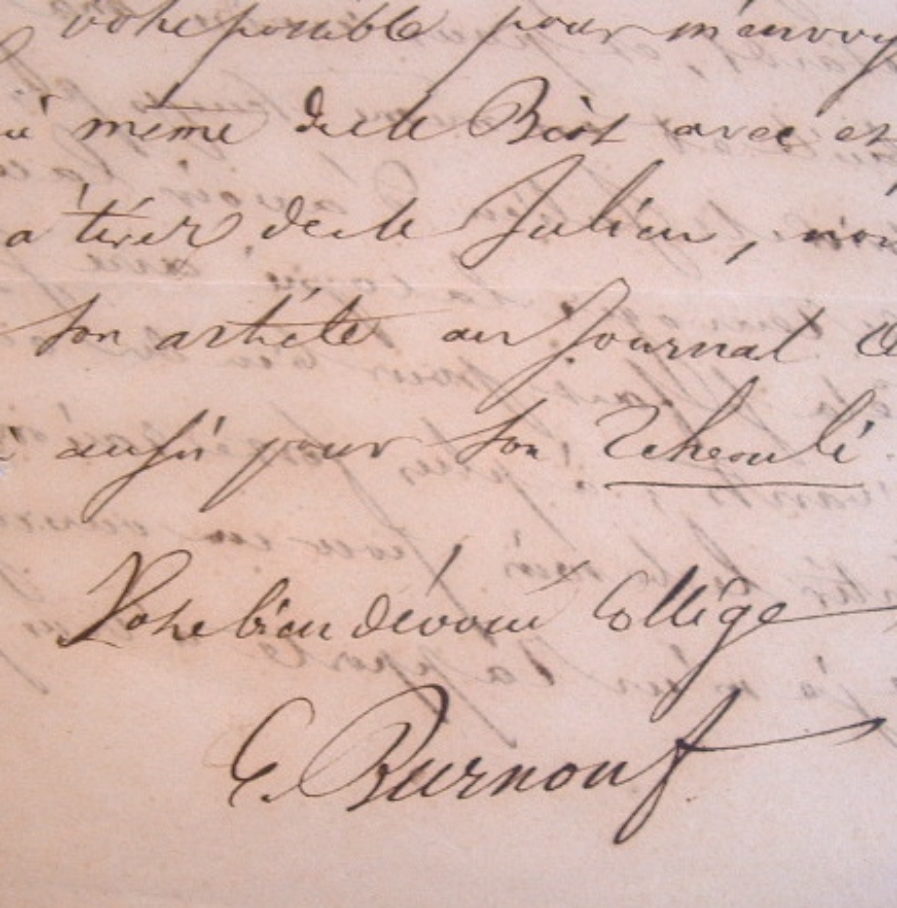 votre possible pour m'envoy
même de M. Biot avec et
a tirer de M. Julien, non
son article au Journal
aussi pour son Tcheouli
Votre bien dévoué Collège
E. Burnouf